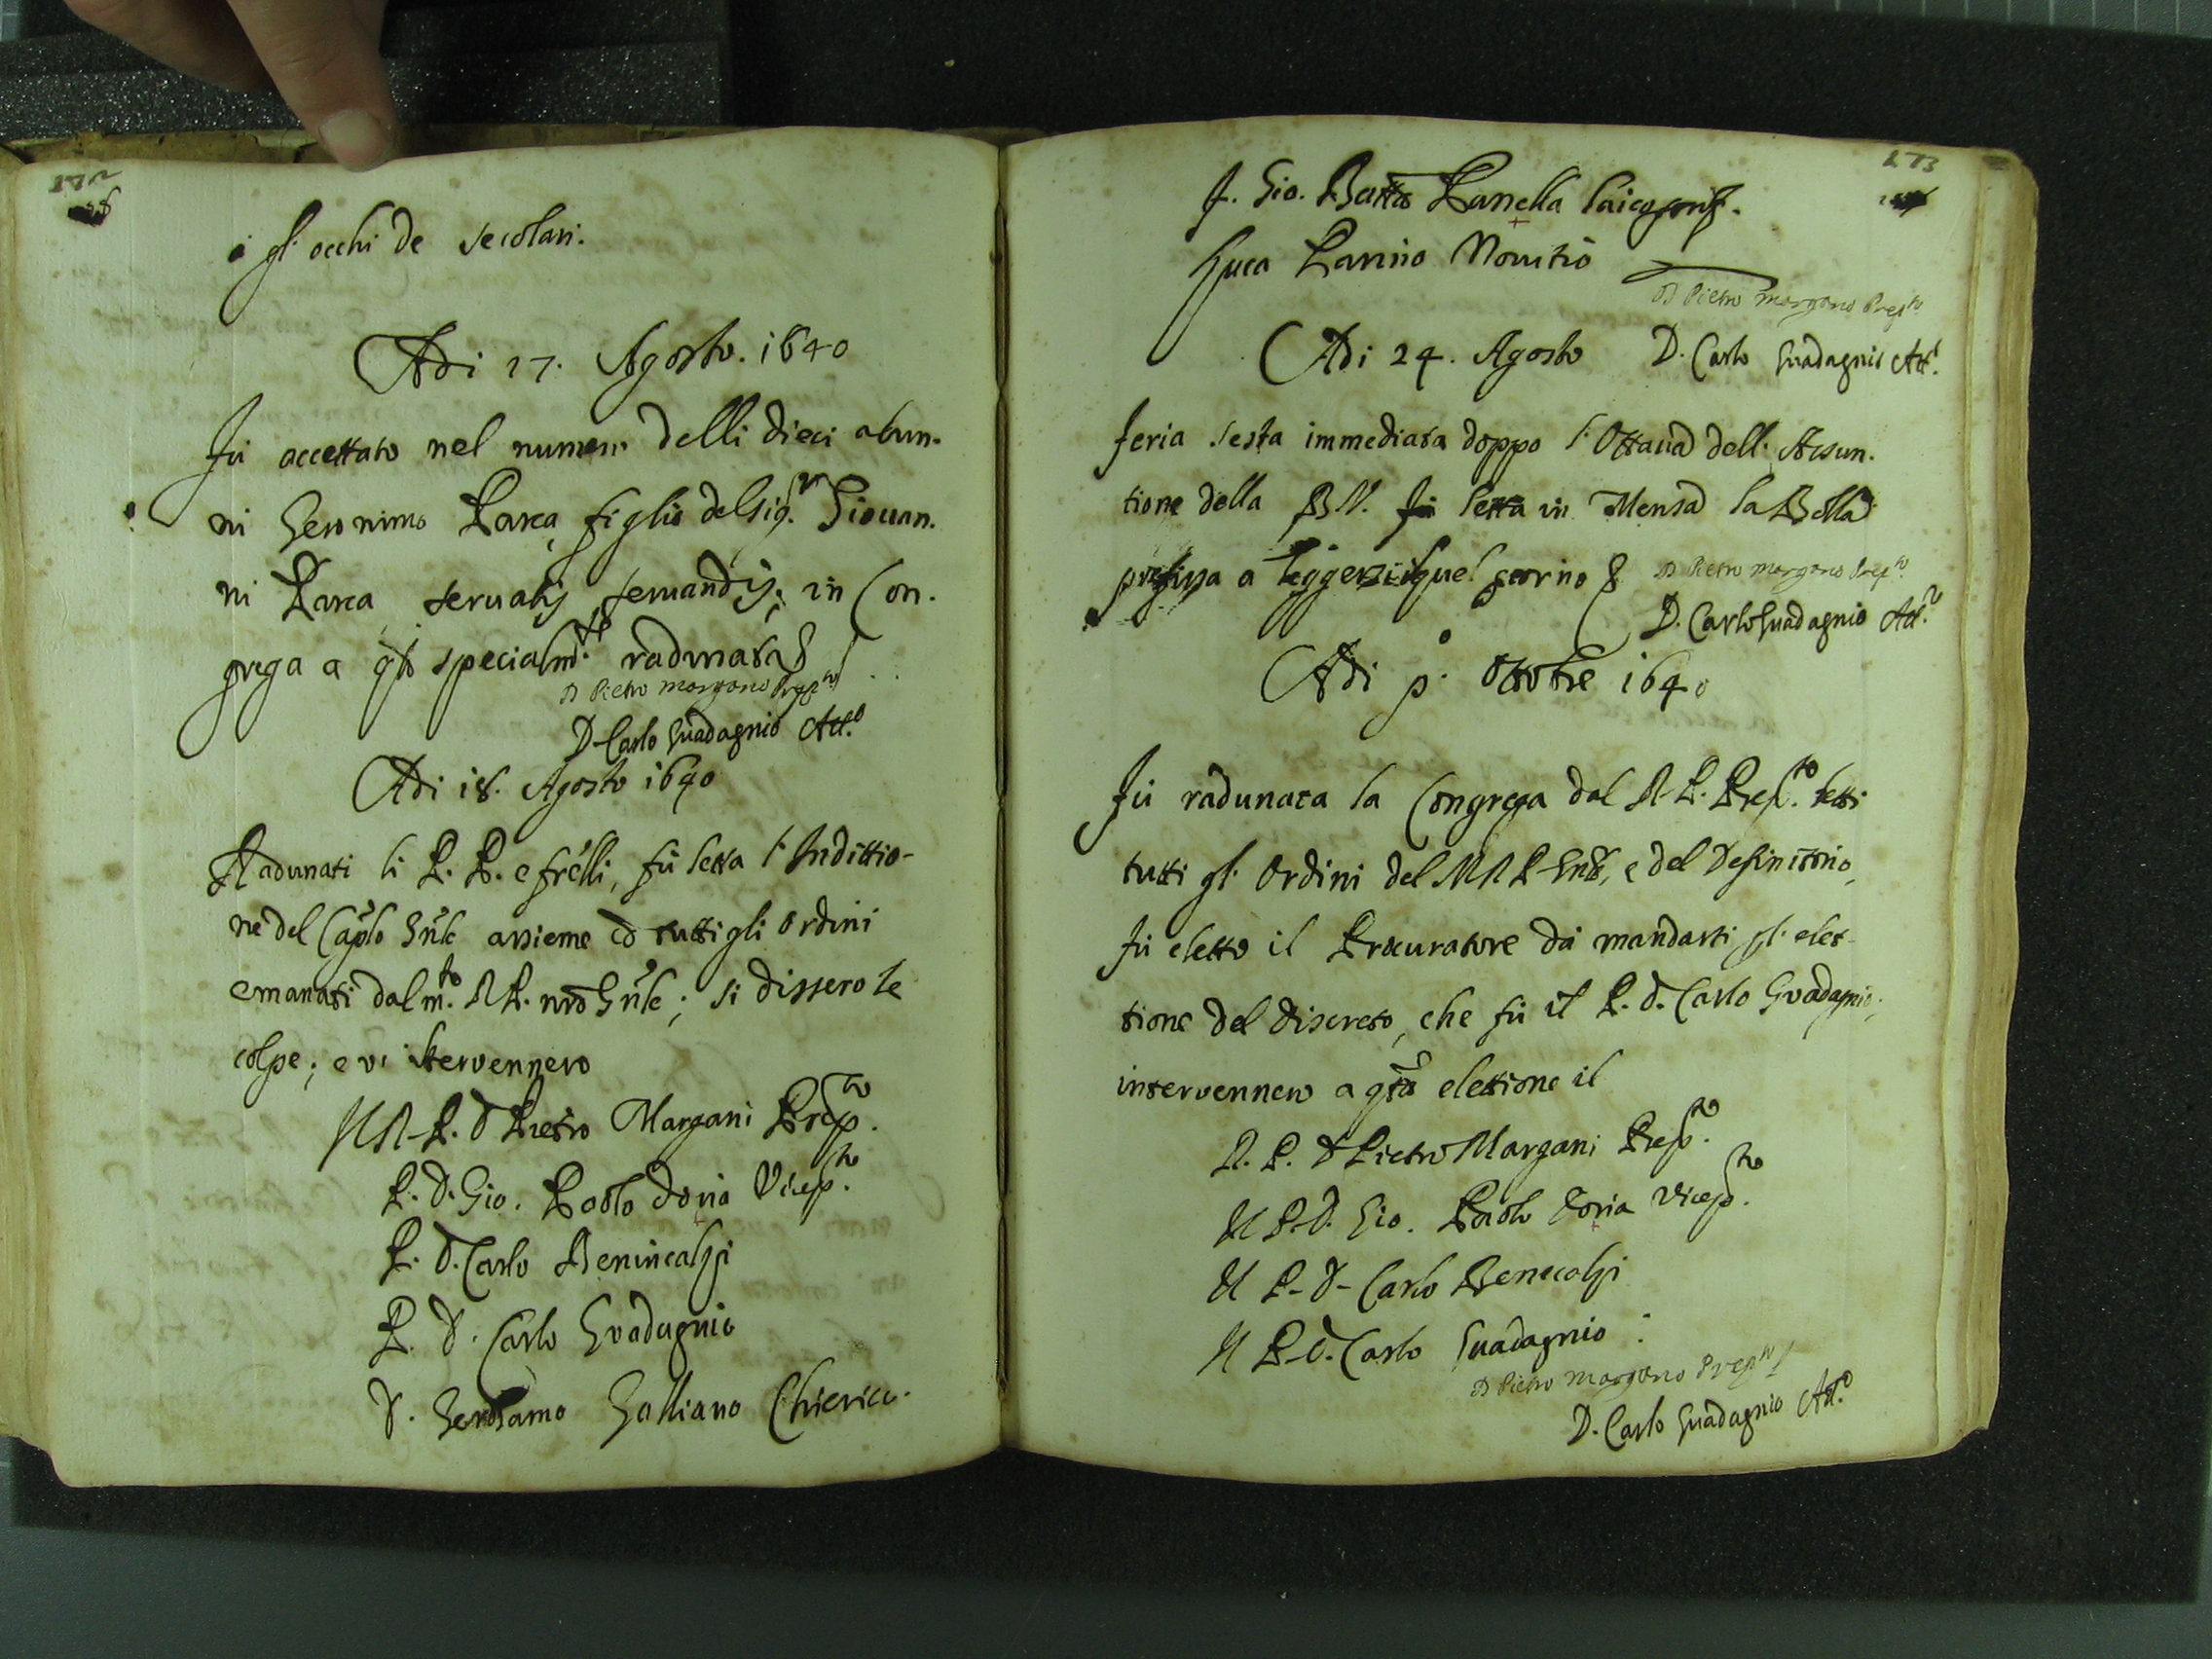 172
i gli occhi de secolari.
Adi 17. Agosto. 1640
Fù accettato nel numero delli dieci alun-
ni Geronimo Parca figlio del sig.r Giouan-
ni Parca seruatis seruandis; in Con-
grega a q.to specialm.te radunata
D Pietro Margano Prep.to
D. Carlo Guadagnio Att.o
Adi 18. Agosto 1640
Radunati li P. P. e frelli, fù letta l'Indittio-
ne del Caplo Gnle assieme cõ tutti gli ordini
emanati dal m.to R P. nrõ Gnle; si dissero le
colpe; e vi itervennero
Il R. P. D Pietro Margani Prep.to
P. D. Gio. Paolo Doria Vicep.to
P. D. Carlo Benincalzi
P. D. Carlo Gvadagnio
D. Gerolamo Galliano Chierico.
173
F. Gio. Batta Panella laico prof.
Luca Panino Novitio
D Pietro Margano Prep.to
Adi 24. Agosto D. Carlo Guadagnio Att.
Feria sesta immediata doppo l'Ottaua dell' Assun-
tione della B V. fù letta in Mensa la Bolla
prefissa a leggersi quel giorno D Pietro Margano Prep.to
D. Carlo Guadagnio Att.o
Adi p.o Ottobre 1640
Fù radunata la Congrega dal R. P. Prep.to letti
tutti gl' Ordini del M R P Gnle, e del Definitorio,
fù eletto il Procuratore da mandarsi pl' elet-
tione del discreto, che fù il P. D. Carlo Gvadagnio;
intervennero a qsta elettione il
R. P. D Pietro Margani Prep.to
Il P. D. Gio. Paolo Doria Vicep.to
Il P. D. Carlo Benecalzi
Il P. D. Carlo Guadagnio
D Pietro Margano Prep.to
D. Carlo Guadagnio Att.o